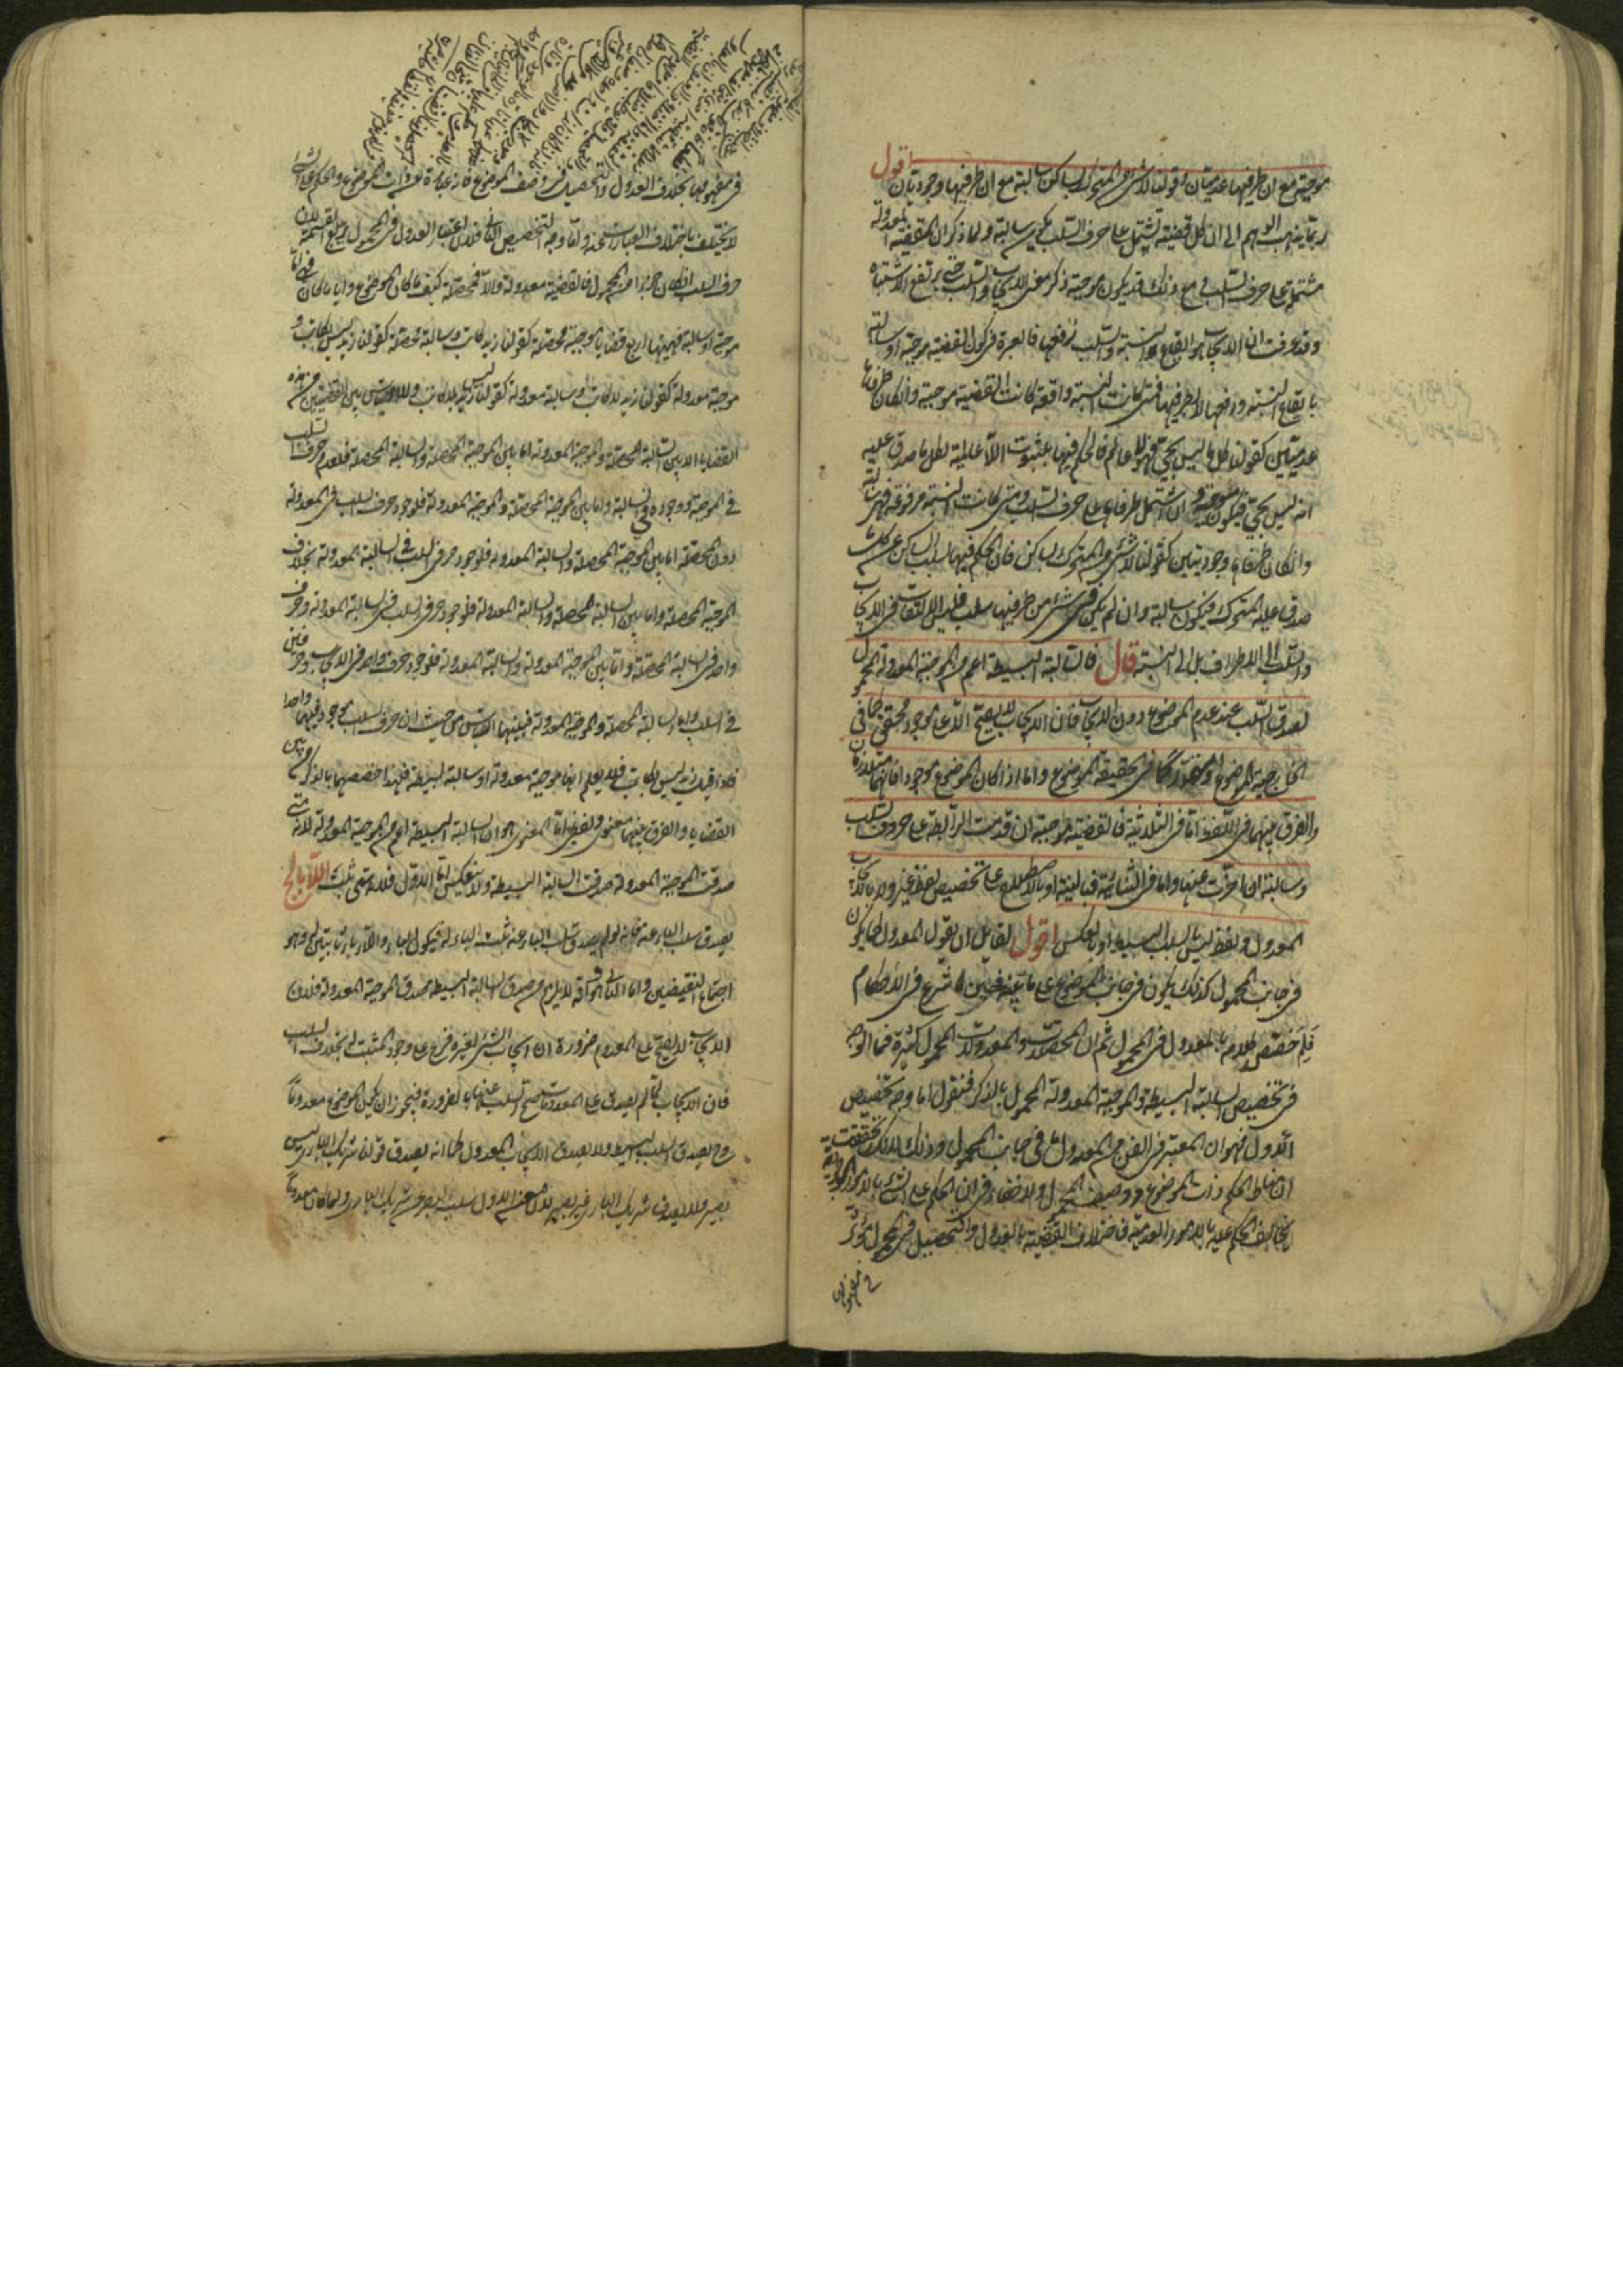 موجبة مع ان طرفيها عدميتان وقولنا لا شئ من المتحرك بساكن سالبة مع ان طرفيها وجوديتان اقول
ربما يذهب الوهم الى ان كل قضية تشتمل على حرف السلب تكون سالبة ولما ذكر ان القضية المعدولة
مشتملة على حرف السلب ومع ذلك قد يكون موجبة ذكر معنى الايجاب والسلب حتى يرتفع الاشتباه
وقد عرفت ان الايجاب هو ايقاع النسبة والسلب رفعها فالعبرة في كون القضية موجبة او سالبة
بايقاع النسبة ورفعها لا بطرفيها فمتى كانت النسبة واقعة كانت القضية موجبة وان كان طرفاها
عدميتين كقولنا كل ما ليس بحي فهو لا عالم فالحكم فيها بثبوت اللا عالمية لكل ما صدق عليه
انه ليس بحي فيكون موجبة وان اشتمل طرفاها على حرف السلب ومتى كانت النسبة مرفوعة فهي سالبة
وان كان طرفاها وجوديتين كقولنا لا شئ من المتحرك بساكن فان الحكم فيها بسلب الساكن عن كل ما
صدق عليه المتحرك فيكون سالبة وان لم يكن في شئ من طرفيها سلب فليس الالتفات في الايجاب
والسلب الى الاطراف بل الى النسبة قال فالسالبة البسيطة اعم من الموجبة المعدولة المحمول
لصدق السلب عند عدم الموضوع دون الايجاب فان الايجاب لا يصح الا على موجود محقق كما في
الخارجية الموضوع او مقدر كما في حقيقة الموضوع واما اذا كان الموضوع موجودا فانهما متلازمان
والفرق بينهما في اللفظ اما في الثلاثية فالقضية موجبة ان قدمت الرابطة على حرف السلب
وسالبة ان اخرت عنها واما في الثنائية فبالنية او بالاصطلاح على تخصيص لفظ غير ولا بالايجاب
المعدول ولفظ ليس بالسلب البسيط او بالعكس اقول لقايل ان يقول العدول كما يكون
في جانب المحمول كذلك يكون في جانب الموضوع على ما بينه فحين ما شرع في الاحكام
فلم خصص كلامه بالعدول في المحمول ثم ان المحصلات والمعدولات المحمول كثيرة فما الوجه
في تخصيص السالبة البسيطة والموجبة المعدولة المحمول بالذكر فنقول اما وجه تخصيص
الاول فهو ان المعتبر في الفن من العدول ما في جانب المحمول وذلك لانك تحققت
ان مناط الحكم ذات الموضوع ووصف المحمول ولا خفاء في ان الحكم على الشئ بالامور الوجودية
يخالف الحكم عليه بالامور العدمية فاختلاف القضية بالعدول والتحصيل في المحمول مؤثر
في مفهومها
في مفهومها بخلاف العدول والتحصيل في وصف الموضوع فانه عبارة عن ذات الموضوع والحكم على الشئ
لا يختلف باختلاف العبارات عنه واما وجه التخصيص الثاني فلان اعتبار العدول في المحمول يربع القسمة لان
حرف السلب ان كان جزءا من المحمول فالقضية معدولة والا فمحصلة كيف ما كان الموضوع وايا ما كان فهي اما
موجبة او سالبة فهيهنا اربع قضايا موجبة محصلة كقولنا زيد كاتب وسالبة محصلة كقولنا زيد ليس بكاتب و
موجبة معدولة كقولنا زيد لا كاتب وسالبة معدولة كقولنا زيد ليس بلا كاتب ولا التباس بين القضيتين من هذه
القضايا الا بين السالبة المحصلة والموجبة المعدولة اما بين الموجبة المحصلة والسالبة المحصلة فلعدم حرف السلب
في الموجبة ووجوده في السالبة واما بين الموجبة المحصلة والموجبة المعدولة فلوجود حرف السلب في المعدولة
دون المحصلة اما بين الموجبة المحصلة والسالبة المعدولة فلوجود حرفي السلب في السالبة المعدولة بخلاف
الموجبة المحصلة واما بين السالبة المحصلة والسالبة المعدولة فلوجود حرفي السلب في السالبة المعدولة وحرف
واحد في السالبة المحصلة واما بين الموجبة المعدولة والسالبة المعدولة فلوجود حرف واحد في الايجاب وحرفين
في السلب واما السالبة المحصلة والموجبة المعدولة فبينهما التباس من حيث ان حرف السلب موجود فيهما واحدا
فاذا قيل زيد ليس بكاتب فلا يعلم انها موجبة معدولة او سالبة بسيطة فلهذا خصصهما بالذكر من بين
القضايا والفرق بينهما معنوي ولفظي اما المعنوي فهو ان السالبة البسيطة اعم من الموجبة المعدولة لانه متى
صدقت الموجبة المعدولة صدقت السالبة البسيطة ولا ينعكس اما الاول فلانه متى ثبت اللاباء لج
يصدق سلب الباء عنه فانه لو لم يصدق سلب الباء عنه ثبت الباء له فيكون الباء واللاباء ثابتين له وهو
اجتماع النقيضين واما الثاني وهو انه لا يلزم من صدق السالبة البسيطة صدق الموجبة المعدولة فلان
الايجاب لا يصح على المعدوم ضرورة ان ايجاب الشئ لغيره فرع على وجود المثبت له بخلاف السلب
فان الايجاب لما لم يصدق على المعدومات صح السلب عنها بالضرورة فيجوز ان يكون الموضوع معدوما
وح يصدق السلب البسيط ولا يصدق الايجاب المعدول كما انه يصدق قولنا شريك الباري ليس
ببصير ولا يصدق شريك الباري غير بصير لان معنى الاول سلب البصر عن شريك الباري ولما كان معدوما